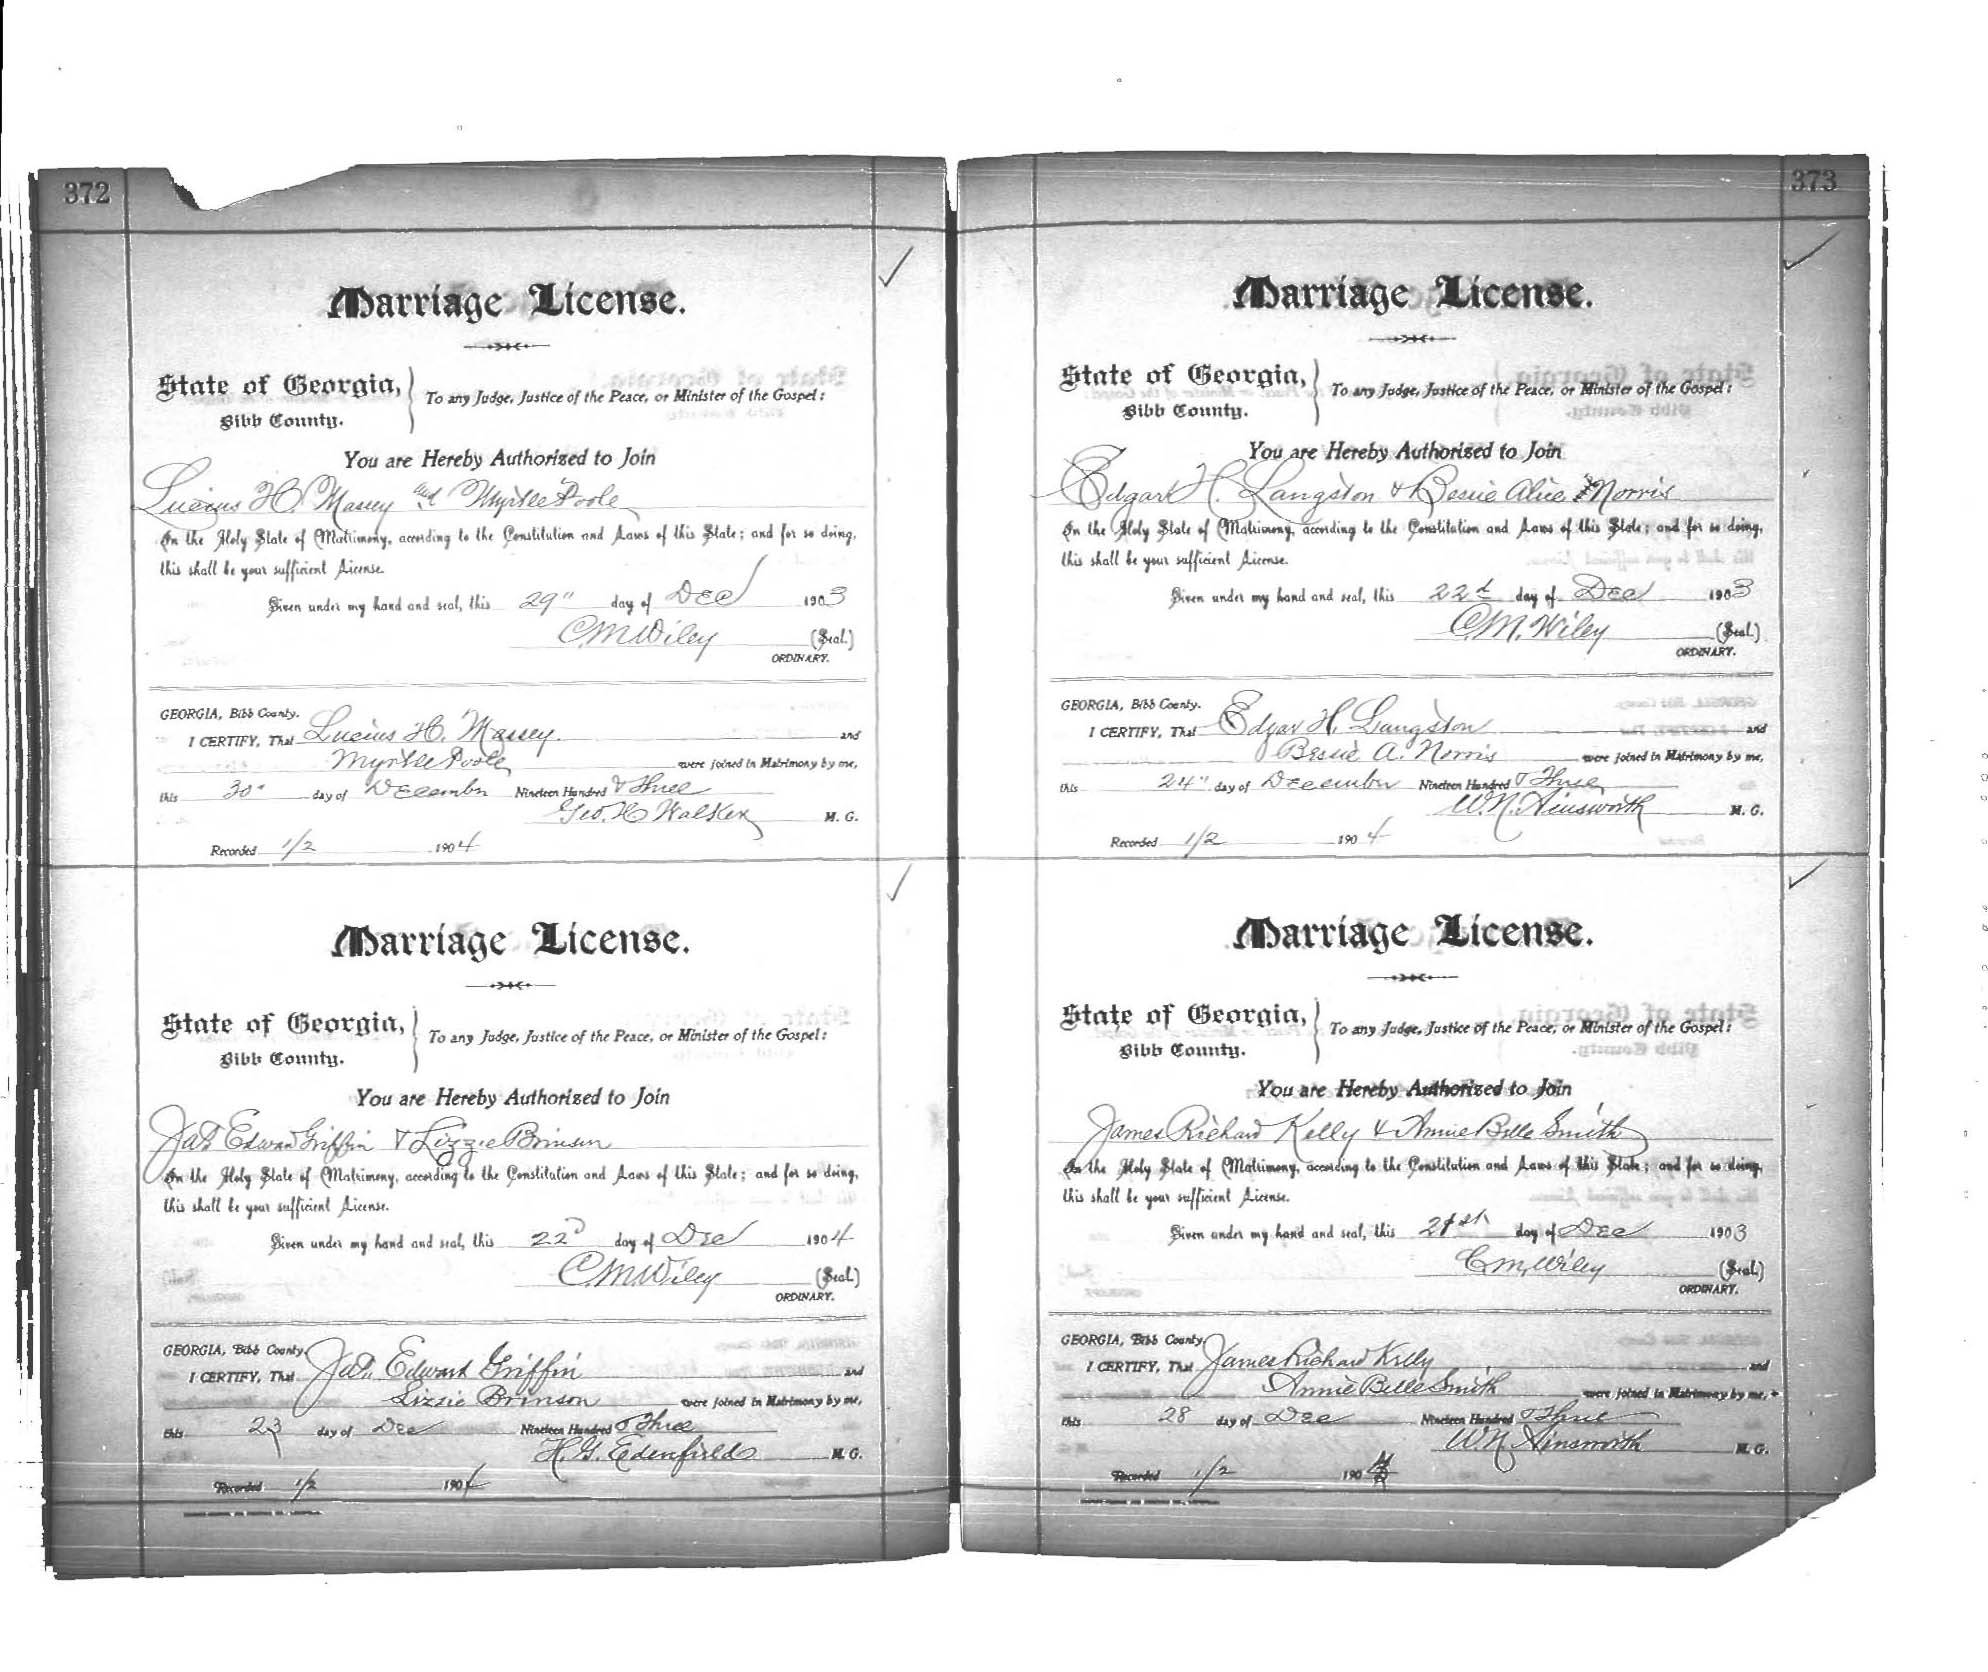 372
Marriage License.
State of Georgia,
Bibb County.
To any Judge, Justice of the Peace, or Minister of the Gospel:
You are Hereby Authorized to Join
Lucius H. Massey and Myrtle Poole
In the Holy State of Matrimony, according to the Constitution and Laws of this State; and for so doing,
this shall be your sufficient License.
Given under my hand and seal, this 29" day of Dec 1903
C.M. Wiley (Seal.)
ORDINARY.
GEORGIA, Bibb County.
I CERTIFY, That Lucius H. Massey and
Myrtle Poole were joined in Matrimony by me,
this 30" day of December Nineteen Hundred & Three
Geo. H Walker M. G.
Recorded 1/2 1904
Marriage License.
State of Georgia,
Bibb County.
To any Judge, Justice of the Peace, or Minister of the Gospel:
You are Hereby Authorized to Join
Jas Edward Griffin & Lizzie Brinson
In the Holy State of Matrimony, according to the Constitution and Laws of this State; and for so doing,
this shall be your sufficient License.
Given under my hand and seal, this 22d day of Dec 1904
C M Wiley (Seal.)
ORDINARY.
GEORGIA, Bibb County.
I CERTIFY, That Jas. Edward Griffin and
Lizzie Brinson were joined in Matrimony by me,
this 23 day of Dec Nineteen Hundred & Three
H. G. Edenfield M. G.
Recorded 1/2 1904
373
Marriage License.
State of Georgia,
Bibb County.
To any Judge, Justice of the Peace, or Minister of the Gospel:
You are Hereby Authorized to Join
Edgar H. Langston & Bessie Alice Norris
In the Holy State of Matrimony, according to the Constitution and Laws of this State; and for so doing,
this shall be your sufficient License.
Given under my hand and seal, this 22d day of Dec 1903
C.M. Wiley (Seal.)
ORDINARY.
GEORGIA, Bibb County.
I CERTIFY, That Edgar H. Langston and
Bessie A. Norris were joined in Matrimony by me,
this 24" day of December Nineteen Hundred & Three
W. N. Ainsworth M. G.
Recorded 1/2 1904
Marriage License.
State of Georgia,
Bibb County.
To any Judge, Justice of the Peace, or Minister of the Gospel:
You are Hereby Authorized to Join
James Richard Kelly & Annie Belle Smith
In the Holy State of Matrimony, according to the Constitution and Laws of this State; and for so doing,
this shall be your sufficient License.
Given under my hand and seal, this 21st day of Dec 1903
C.M. Wiley (Seal.)
ORDINARY.
GEORGIA, Bibb County.
I CERTIFY, That James Richard Kelly and
Annie Belle Smith were joined in Matrimony by me,
this 28 day of Dec Nineteen Hundred & Three
W N Ainsworth M. G.
Recorded 1/2 1904